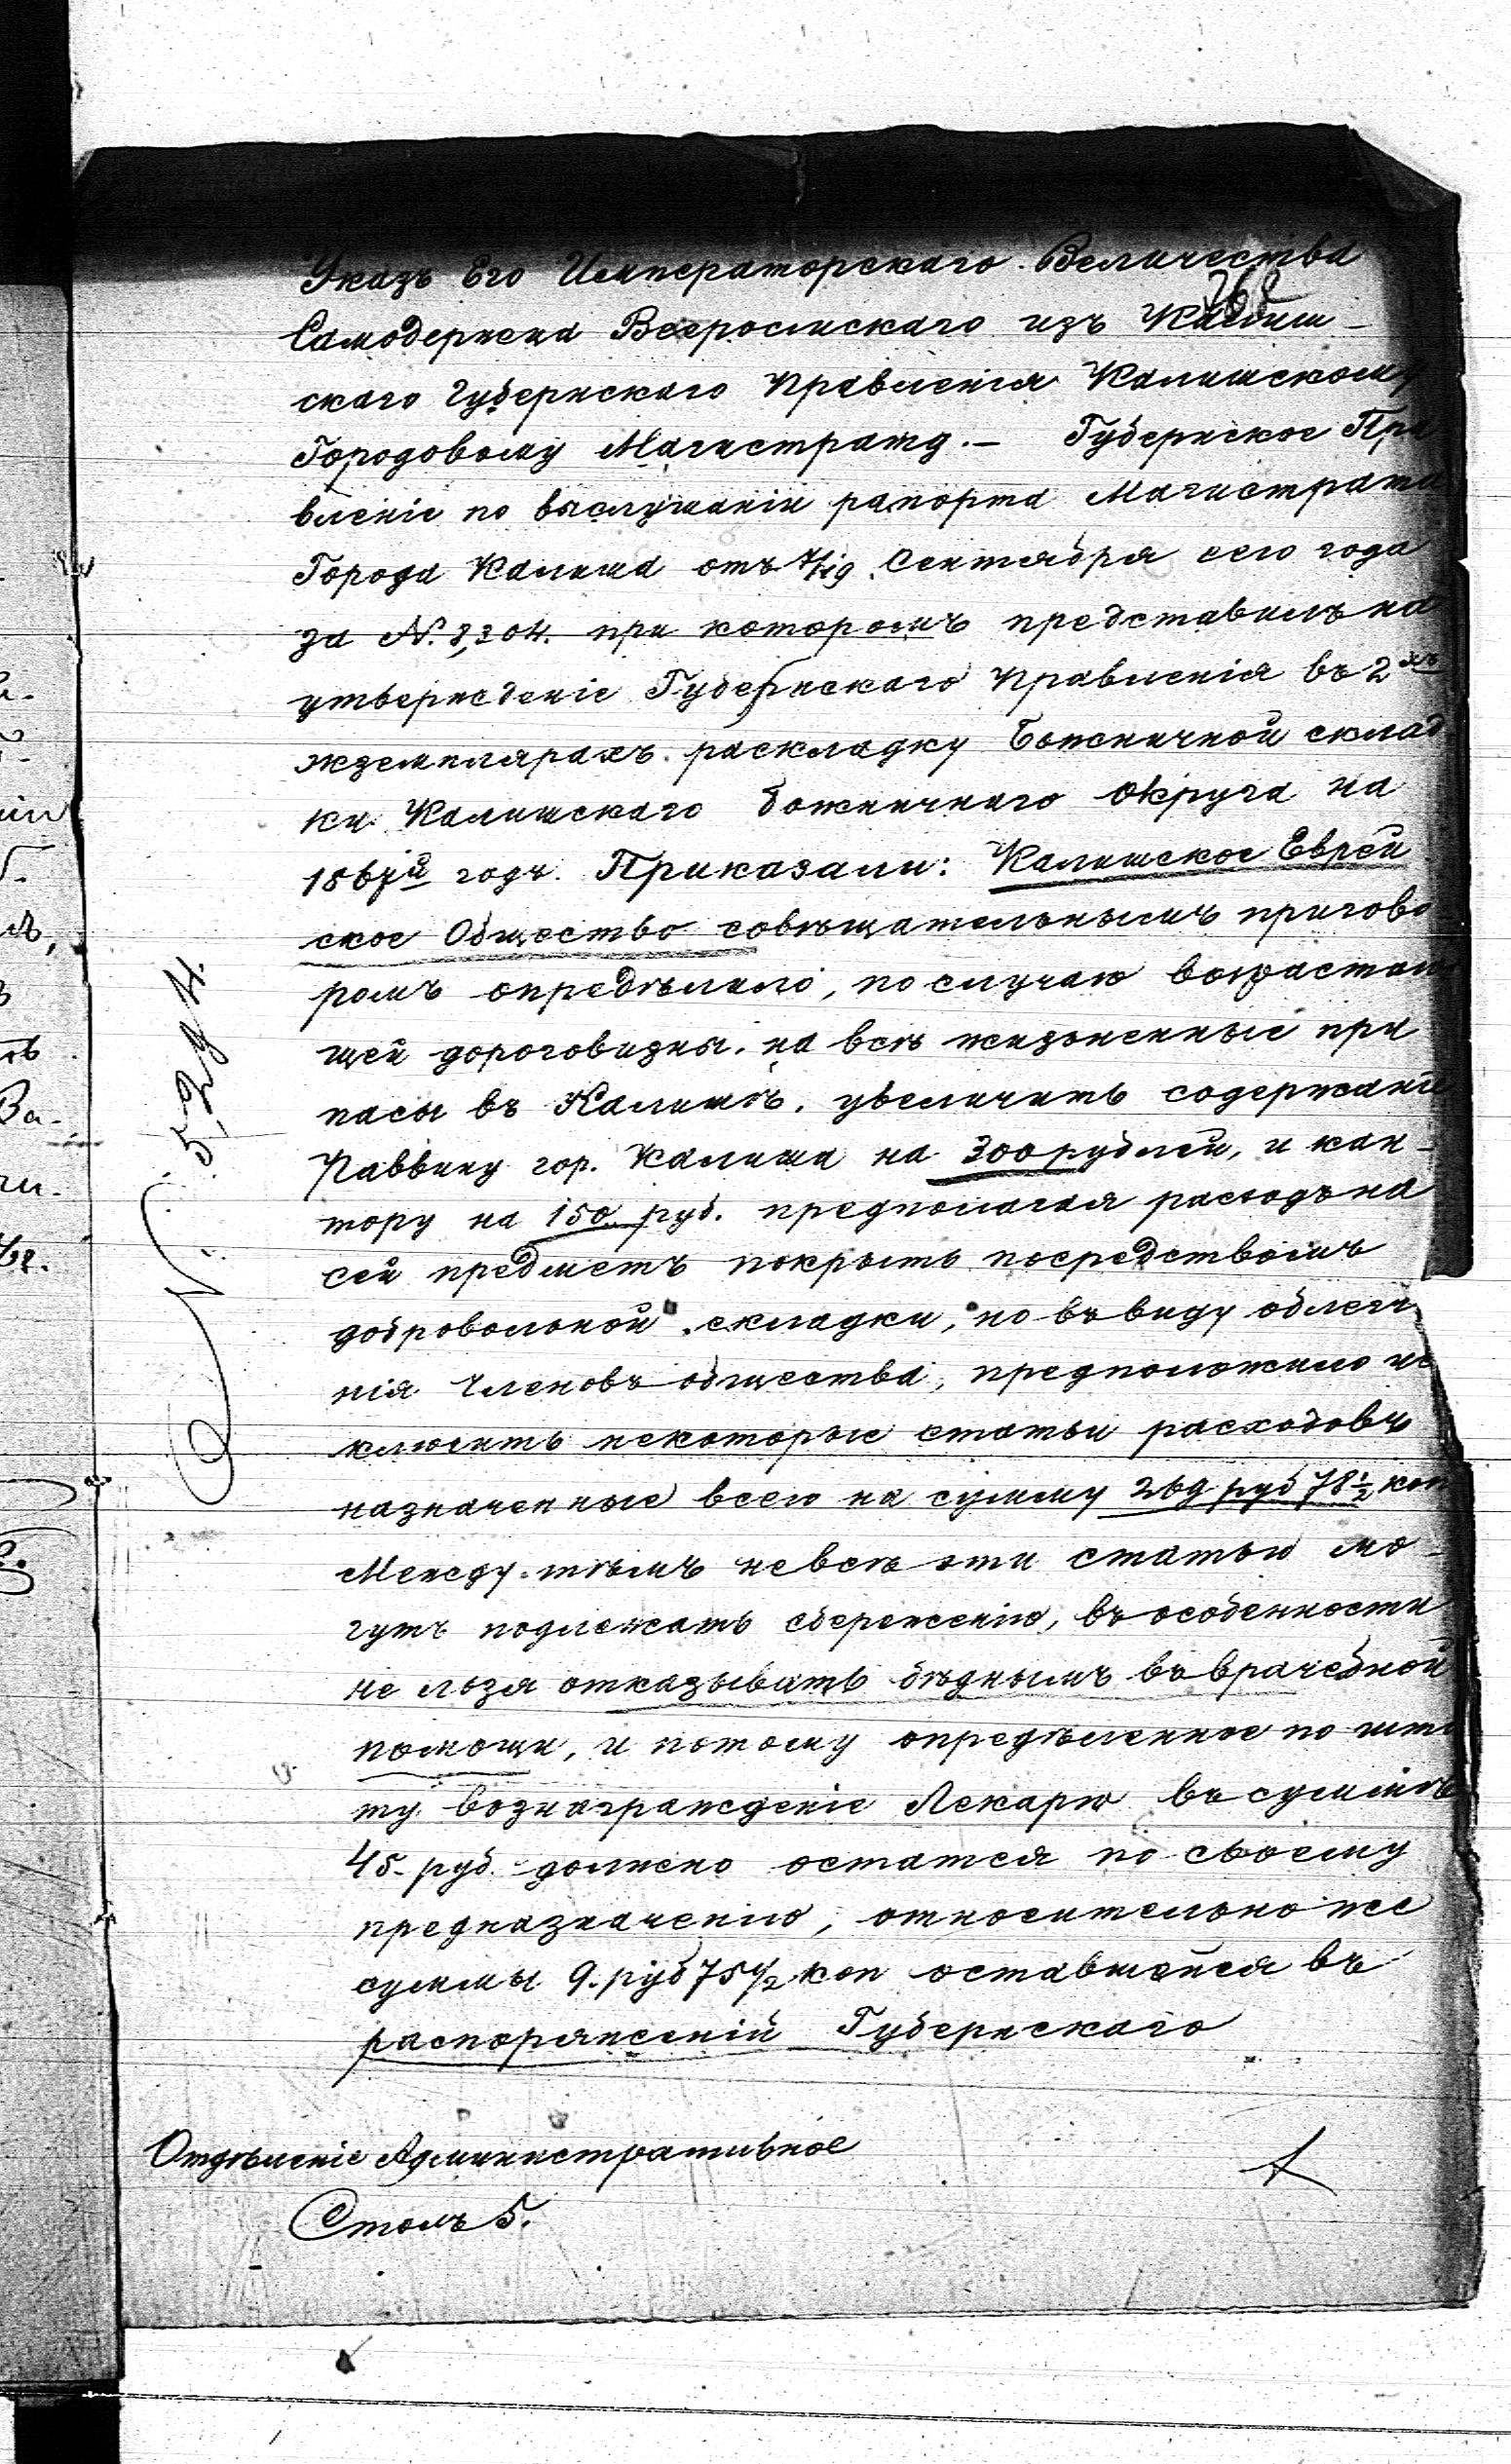 Указъ Его Императорскаго Величества
268
Самодержца Всеросийскаго изъ Калиш-
скаго Губернскаго Правленія Калишскому
Городовому Магистрату. — Губернское Пра
вленіе по выслушаніи рапорта Магистрата
Города Калиша отъ 7/19 Сентября сего года
за N. 8,304. при которомъ представилъ на
утвержденіе Губернскаго Правленія въ 2хъ
экземплярахъ раскладку Божничной склад
ки Калишскаго божничнаго округа на
1867й годъ. Приказали: Калишское Еврей
ское Общество совѣщательнымъ пригово
ромъ опредѣлило, по случаю возрастаю
щей дороговизны на всѣ жизненные при
пасы въ Калишѣ, увеличить содержаніе
Раввину гор. Калиша на 300 рублей, и кан-
тору на 150 руб. предполагая расходъ на
сей предметъ покрыть посредствомъ
добровольной складки, но въ виду облегч
нія Членовъ общества, предположило ис
ключить некоторые статьи расходовъ
назначенные всего на сумму 269 руб 78 1/2 коп
Между тѣмъ не всѣ эти статьи мо-
гутъ подлежать сбереженію, въ особенности
не льзя отказывать бѣднымъ въ врачебной
помощи, и потому опредѣленное по шта
ту вознагражденіе Лекарю въ суммѣ
45 руб. должно остатся по своему
предназначенію, относительно же
суммы 9. руб 75 1/2 коп оставшейся въ
распоряженій Губернскаго
Отдѣленіе Административное
Столъ 5.